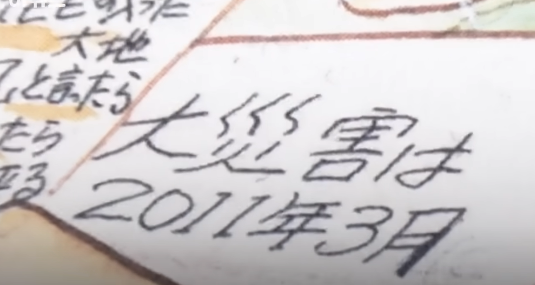 大地
と言ったら
たら
大災害は
2011年3月